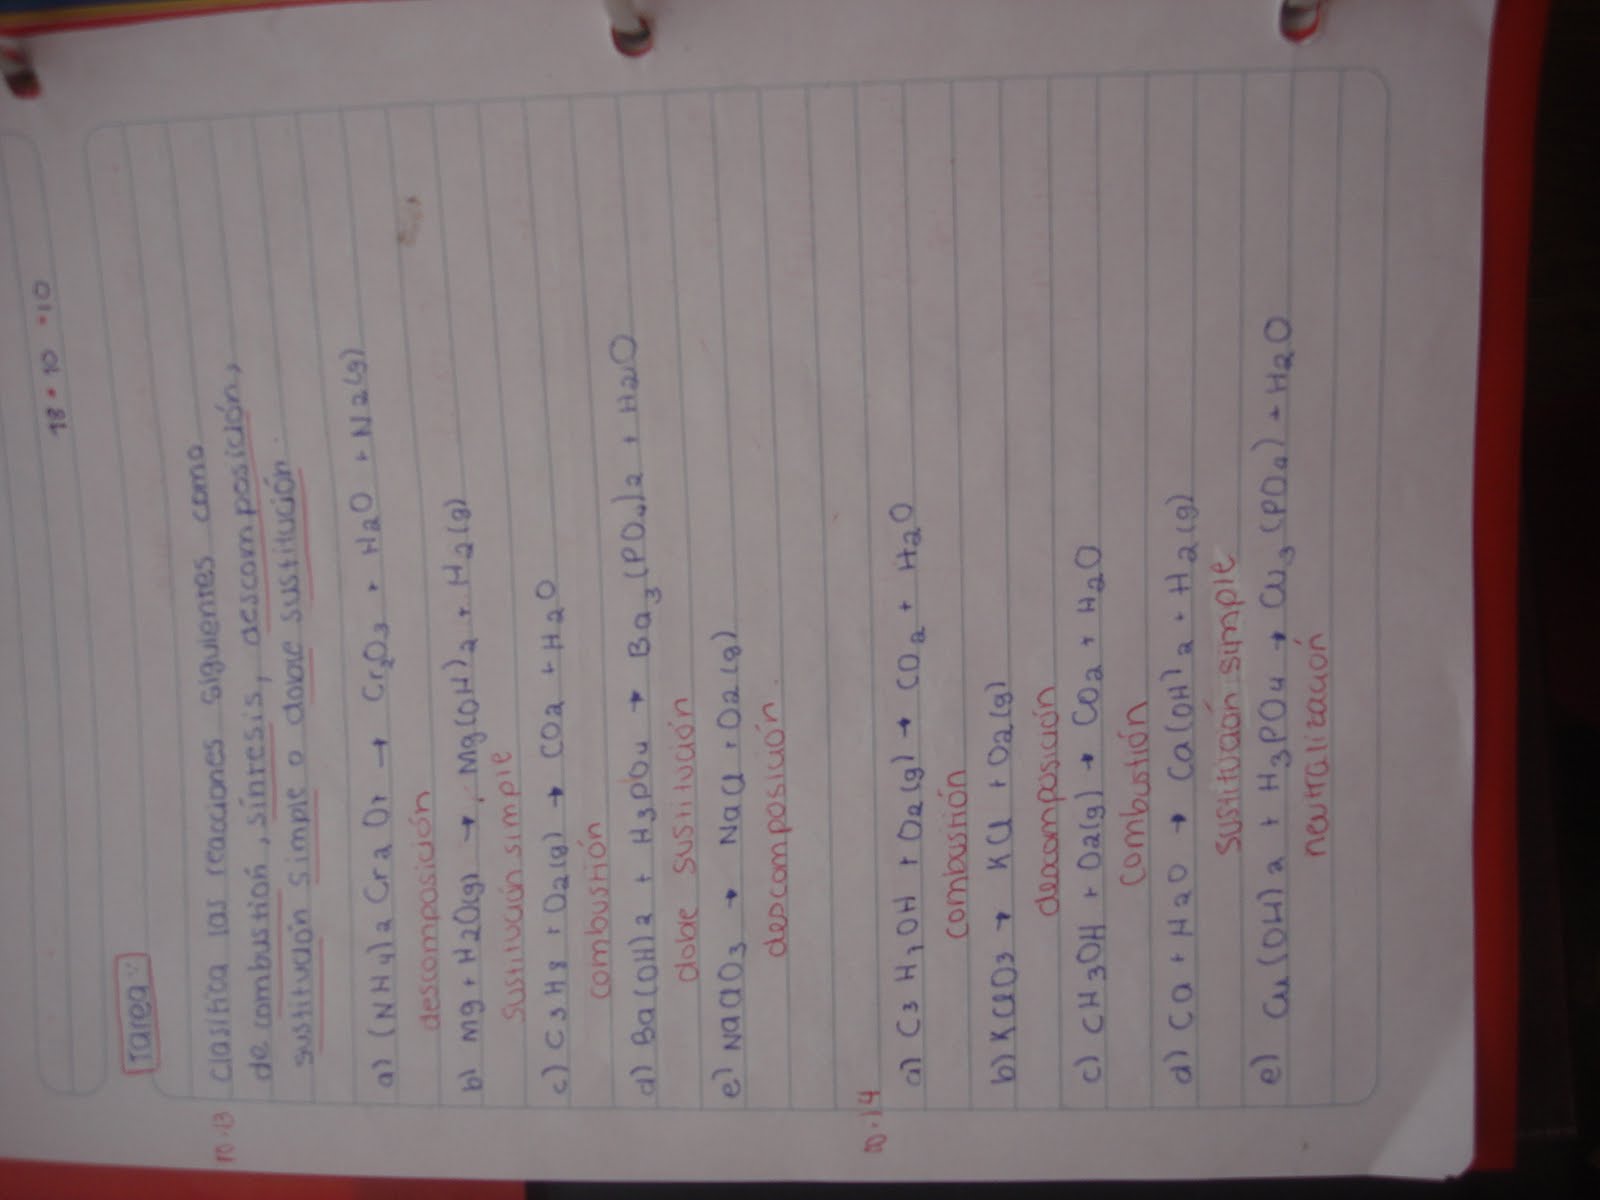 18 • 10 • 10
Tarea
10.13 Clasifica las reacciones siguientes como
de combustión, síntesis, descomposición,
sustitución simple o doble sustitución.
a) (NH4)2 Cr2 O7 → Cr2O3 + H2O + N2(g)
descomposición
b) Mg + H2O(g) → Mg(OH)2 + H2(g)
Sustitución simple
c) C3H8 + O2(g) → CO2 + H2O
combustión
d) Ba(OH)2 + H3PO4 → Ba3(PO4)2 + H2O
doble sustitución
e) NaClO3 → NaCl + O2(g)
descomposición.
10.14
a) C3H7OH + O2(g) → CO2 + H2O
combustión
b) KClO3 → KCl + O2(g)
descomposición
c) CH3OH + O2(g) → CO2 + H2O
Combustión
d) Ca + H2O → Ca(OH)2 + H2(g)
sustitución simple
e) Cu(OH)2 + H3PO4 → Cu3(PO4) + H2O
neutralización